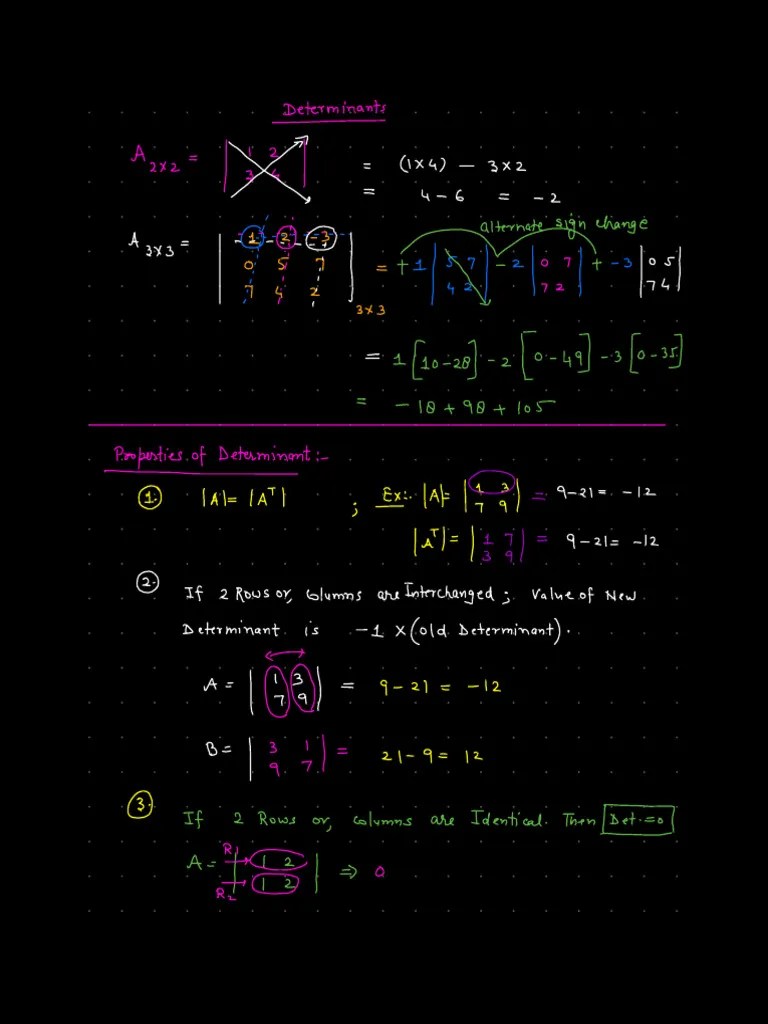 Determinants
A 2×2 = | 1 2 | = (1×4) − 3×2
| 3 4 | = 4−6 = −2
alternate sign change
A 3×3 = | 1 2 −3 | = +1 | 5 7 | −2 | 0 7 | + −3 | 0 5 |
| 0 5 7 | | 4 2 | | 7 2 | | 7 4 |
| 7 4 2 | 3×3
= 1 [10−28] −2 [0−49] −3 [0−35]
= −18 + 98 + 105
Properties of Determinant:-
1. |A| = |Aᵀ| ; Ex:. |A| = | 1 3 | = 9−21 = −12
| 7 9 |
|Aᵀ| = | 1 7 | = 9−21 = −12
| 3 9 |
2. If 2 Rows or, Columns are Interchanged; Value of New
Determinant is −1 × (old Determinant).
A = | 1 3 | = 9−21 = −12
| 7 9 |
B = | 3 1 | = 21−9 = 12
| 9 7 |
3. If 2 Rows or, Columns are Identical. Then Det.=0
A = R1 | 1 2 | ⇒ 0
R2 | 1 2 |